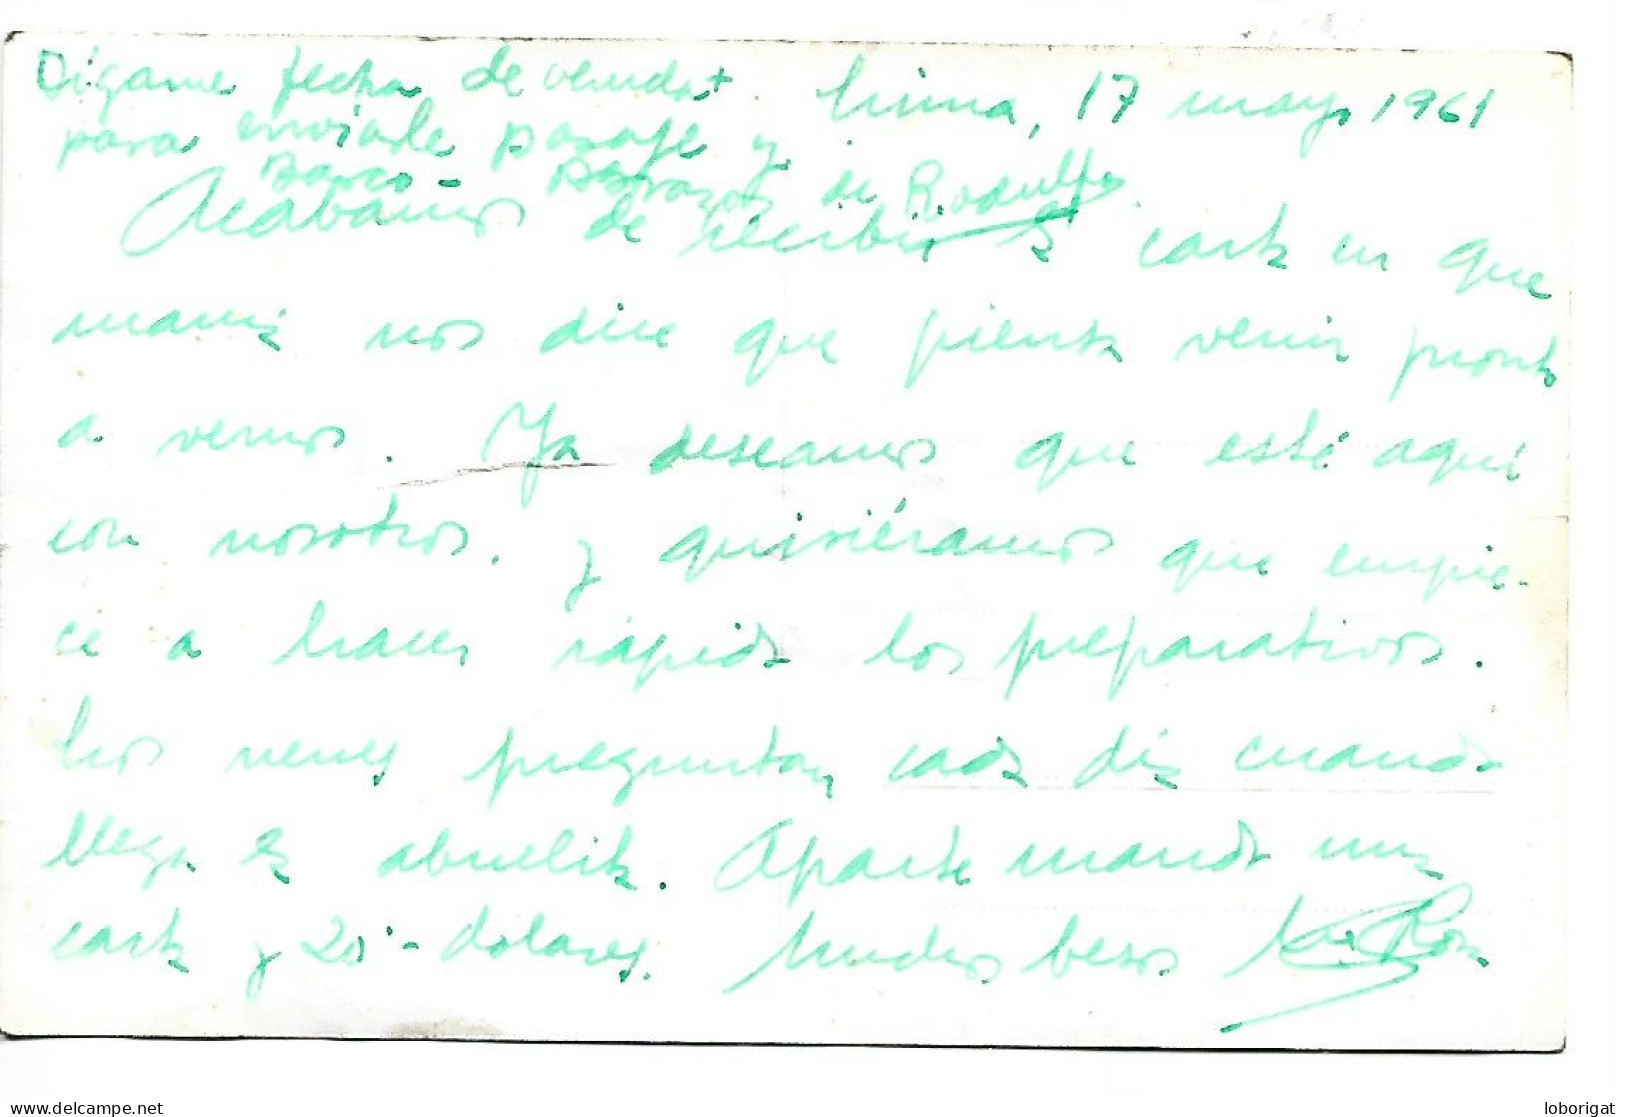 Dígame fecha de venida. Lima, 17 mayo 1961
para enviarle pasaje y
Barco - Abrazos de Rodolfo.
Acabamos de recibir la carta en que
mamá nos dice que piensa venir pronto
a vernos. Ya deseamos que esté aquí
con nosotros. y quisiéramos que empie-
ce a hacer rápido los preparativos.
Los nenes preguntan cada día cuando
llega la abuelita. Aparte mando una
carta y 20'- dolares. Muchos besos
delcampe.net
loborigat